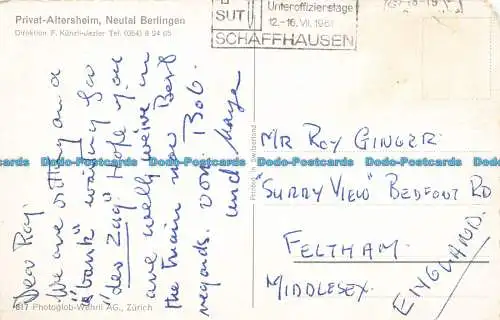 Privat-Altersheim, Neutal Berlingen
Direktion F. Künzli-Jezler Tel. (054) 8 24 05
SUT
Unteroffizierstage
12.-16. VII. 1961
SCHAFFHAUSEN
Dear Ray.
We are sitting on a
"bank" waiting for
"der Zug" Hope you
are well, we're in
the train now Best
regards. von. Bob.
und Maya
Printed in Switzerland
MR ROY GINGER.
"SURRY VIEW" BEDFONT RD
FELTHAM.
MIDDLESEX.
ENGLAND.
817 Photoglob-Wehrli AG., Zürich
Dodo-Postcards Dodo-Postcards Dodo-Postcards Dodo-Postcards Dodo-Postcards